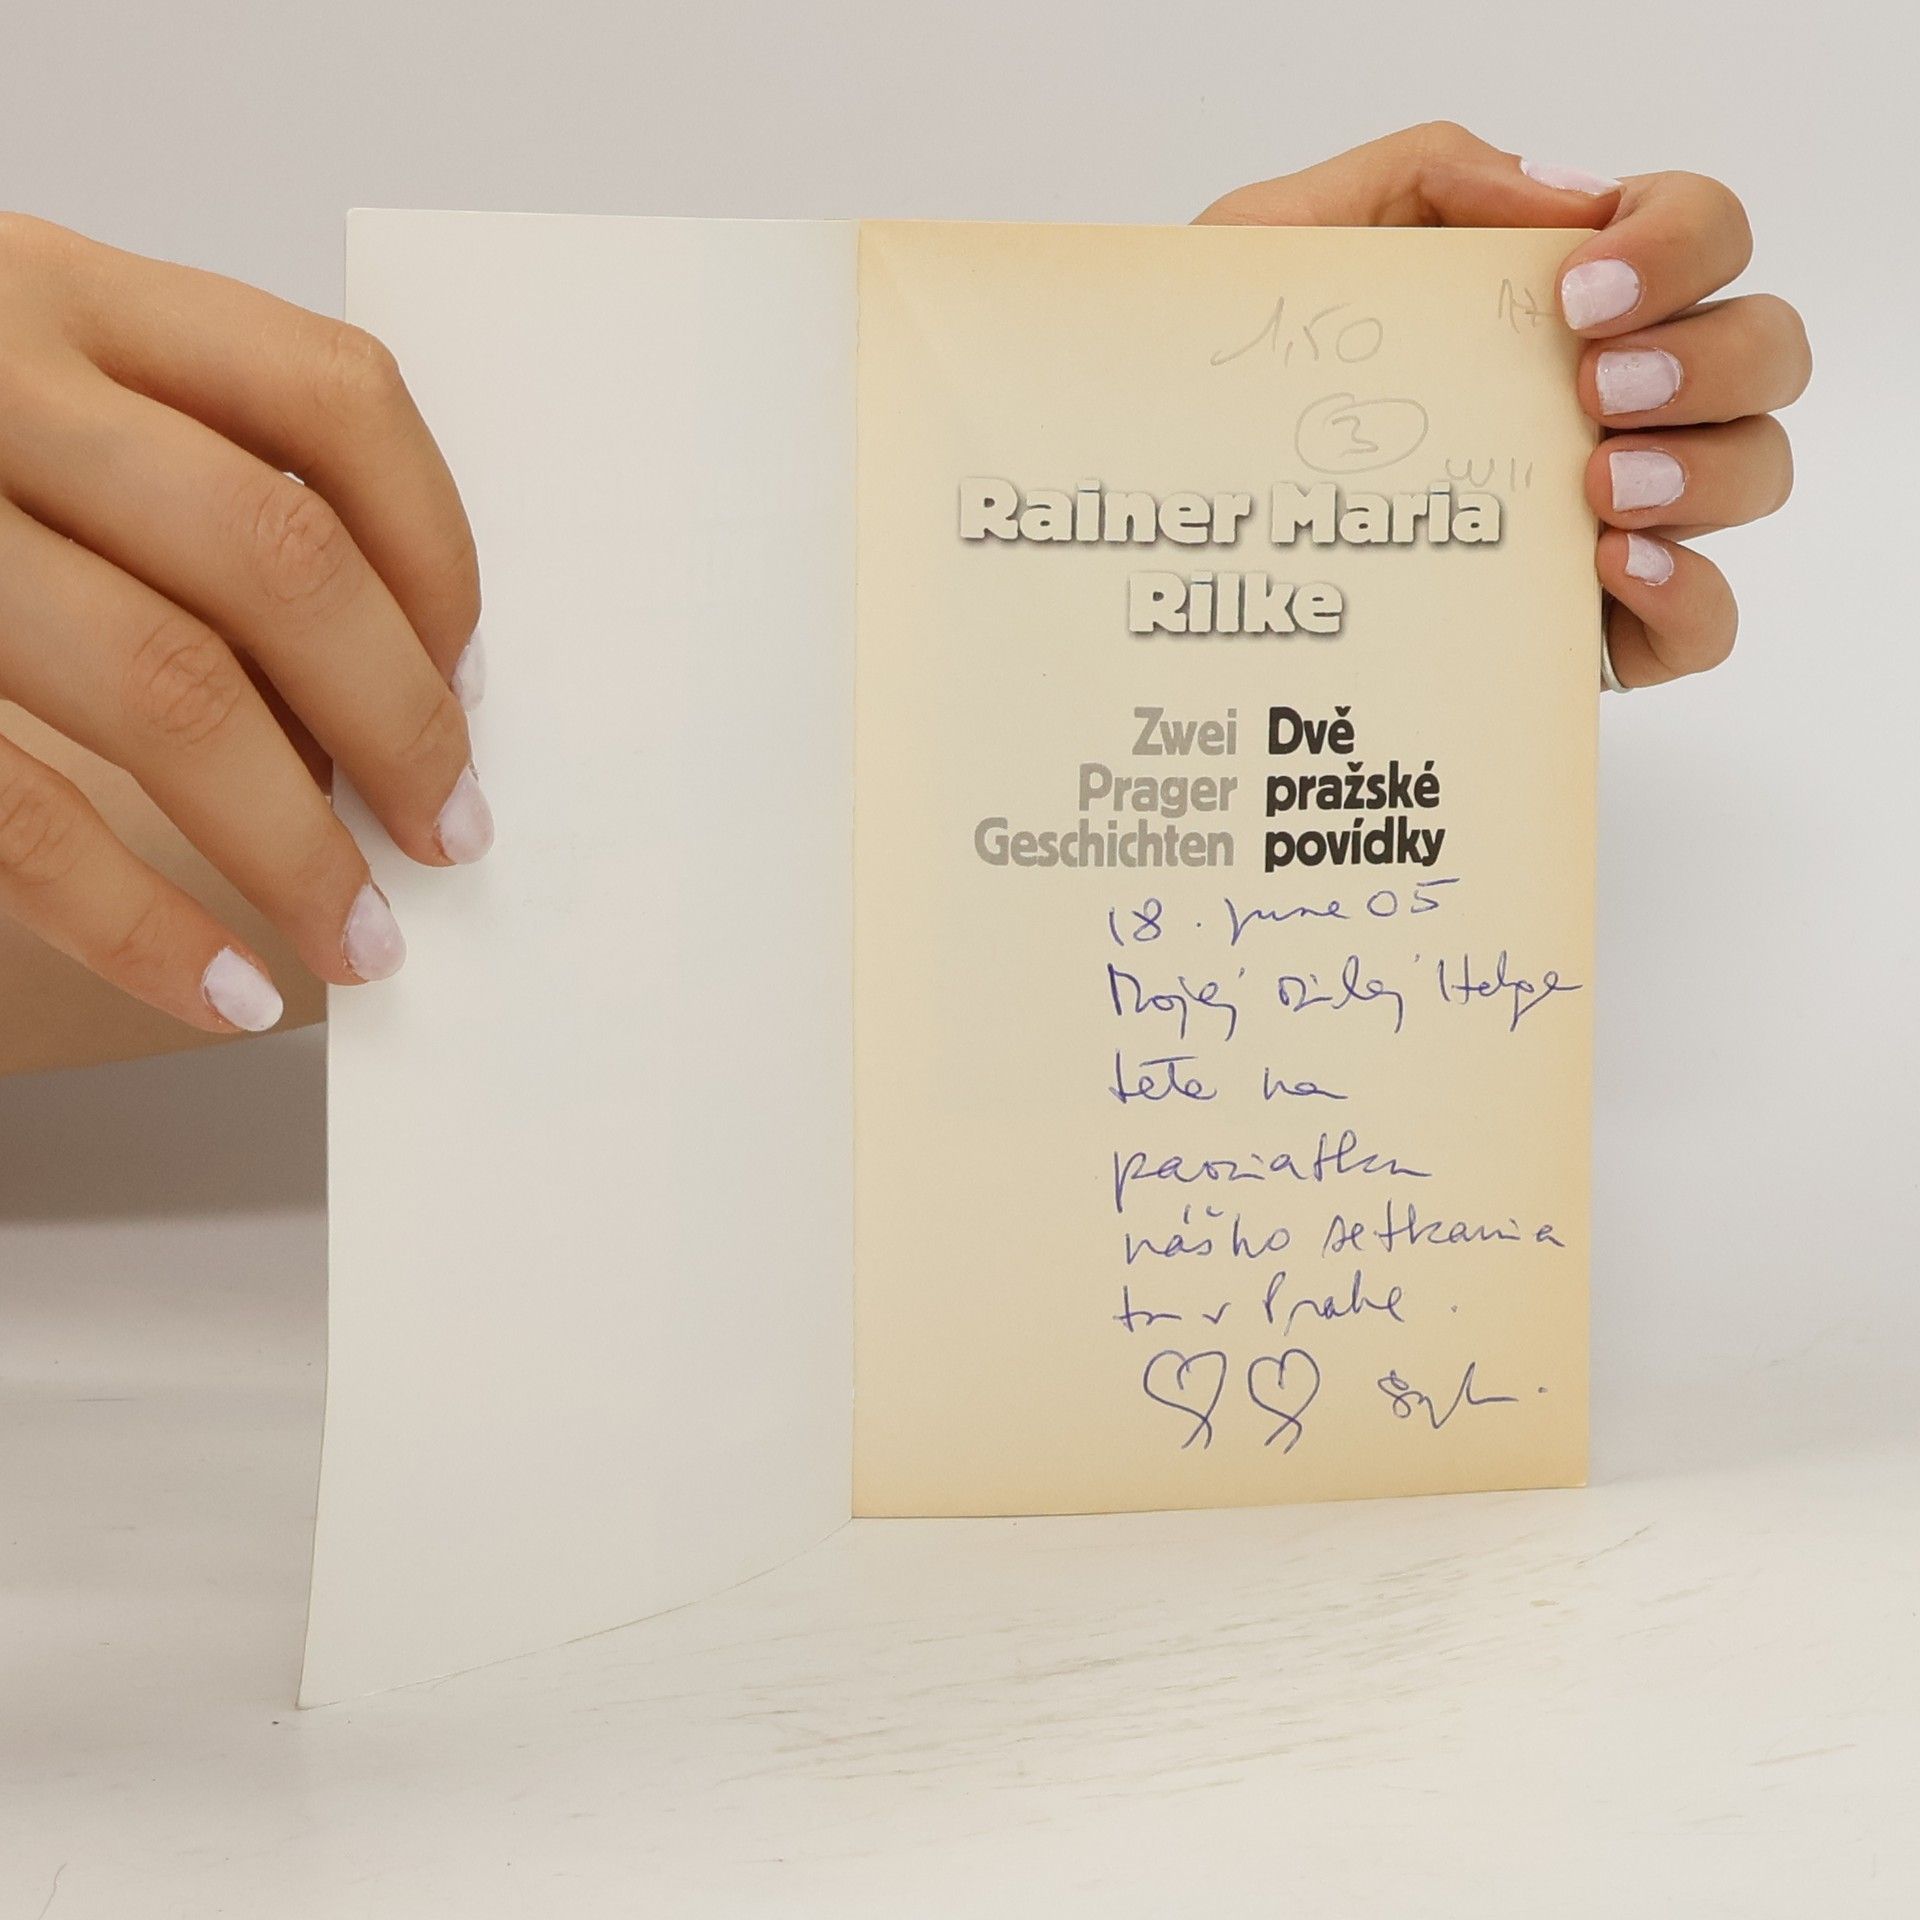 1,50
3
Rainer Maria
Rilke
Zwei Prager Geschichten
Dvě pražské povídky
18. june 05
Mojej milej Helge
tete na
pamiatku
nášho setkania
tu v Prahe.